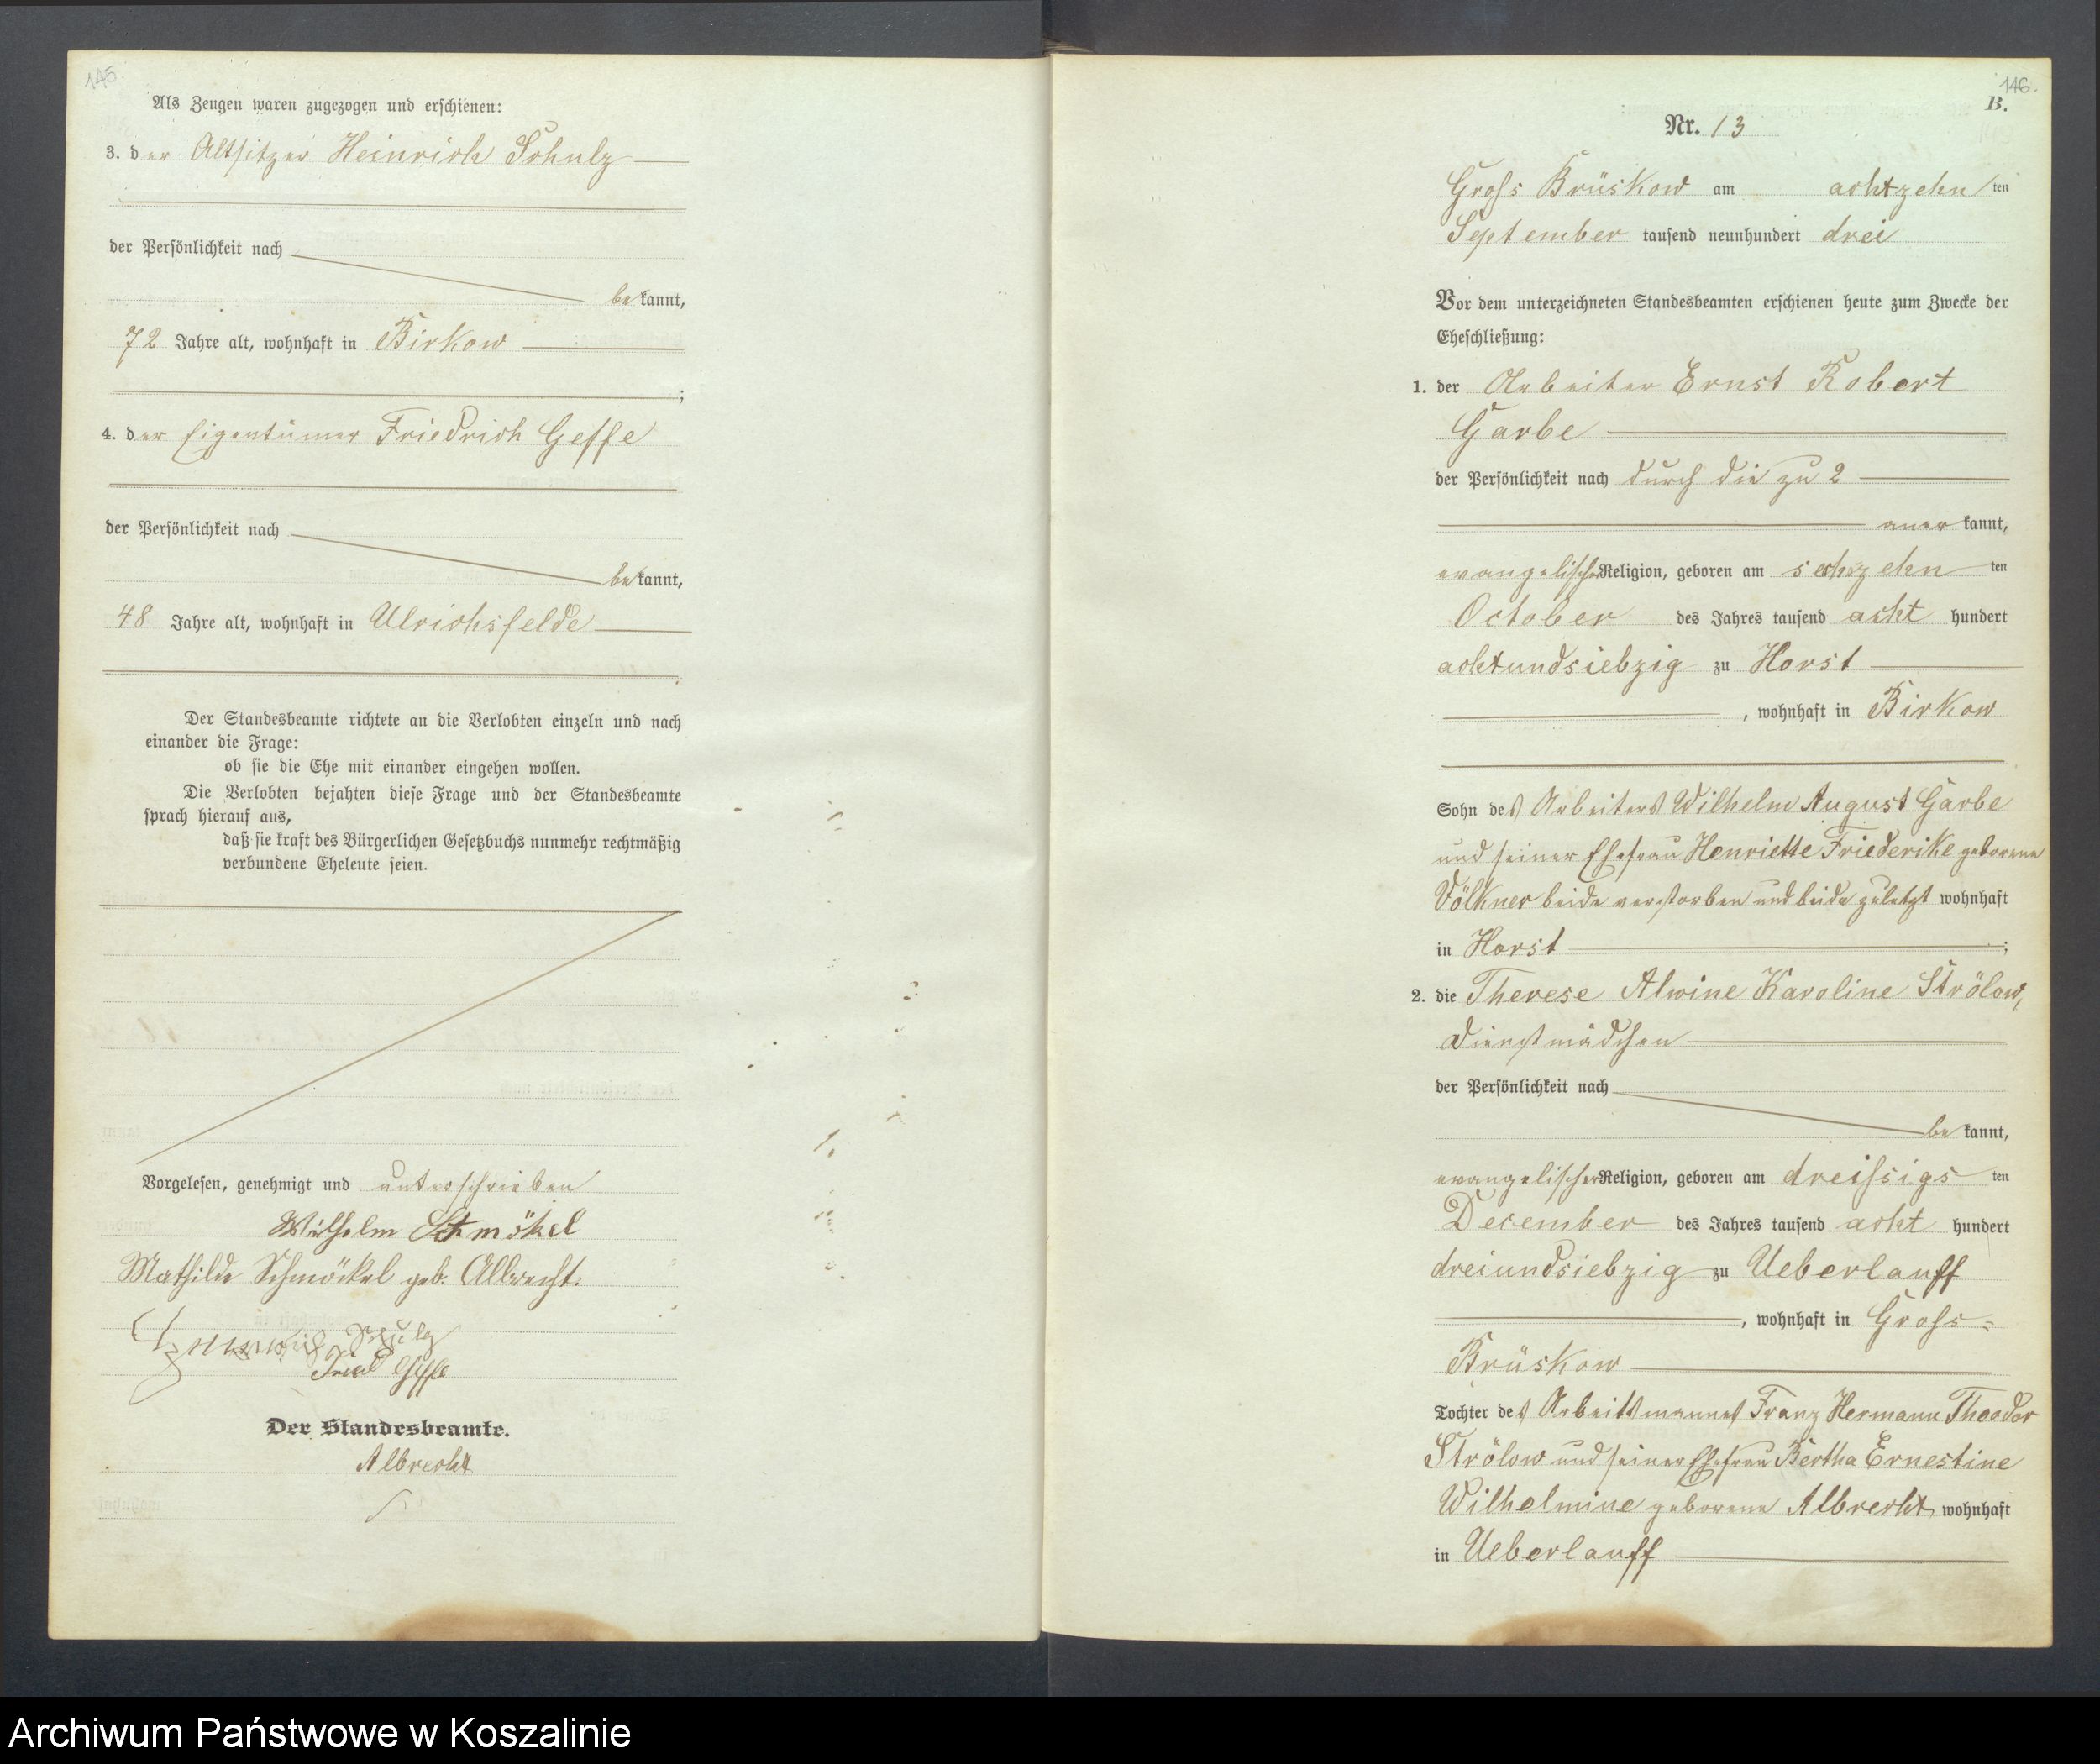 145.
Als Zeugen waren zugezogen und erschienen:
3. der Altsitzer Heinrich Schulz
der Persönlichkeit nach
bekannt,
72 Jahre alt, wohnhaft in Birkow
;
4. der Eigentümer Friedrich Geffe
der Persönlichkeit nach
bekannt,
48 Jahre alt, wohnhaft in Ulrichsfelde
.
Der Standesbeamte richtete an die Verlobten einzeln und nach
einander die Frage:
ob sie die Ehe mit einander eingehen wollen.
Die Verlobten bejahten diese Frage und der Standesbeamte
sprach hierauf aus,
daß sie kraft des Bürgerlichen Gesetzbuchs nunmehr rechtmäßig
verbundene Eheleute seien.
Vorgelesen, genehmigt und unterschrieben
Wilhelm Schmökel
Mathilde Schmöckel geb. Albrecht.
Schulz
Fried Geffe
Der Standesbeamte.
Albrecht
146.
B.
Nr. 13
Gross Brüskow am achtzehnten
September tausend neunhundert drei
Vor dem unterzeichneten Standesbeamten erschienen heute zum Zwecke der
Eheschließung:
1. der Arbeiter Ernst Robert
Garbe
der Persönlichkeit nach durch die zu 2
anerkannt,
evangelischer Religion, geboren am sechszehnten
October des Jahres tausend acht hundert
achtundsiebzig zu Horst
, wohnhaft in Birkow
Sohn des Arbeiters Wilhelm August Garbe
und seiner Ehefrau Henriette Friederike geborene
Völkner beide verstorben und beide zuletzt wohnhaft
in Horst ;
2. die Therese Alwine Karoline Strölow,
Dienstmädchen
der Persönlichkeit nach
bekannt,
evangelischer Religion, geboren am dreissigsten
December des Jahres tausend acht hundert
dreiundsiebzig zu Ueberlauff
, wohnhaft in Gross-
Brüskow
Tochter des Arbeitsmannes Franz Hermann Theodor
Strölow und seiner Ehefrau Bertha Ernestine
Wilhelmine geborene Albrecht, wohnhaft
in Ueberlauff
Archiwum Państwowe w Koszalinie